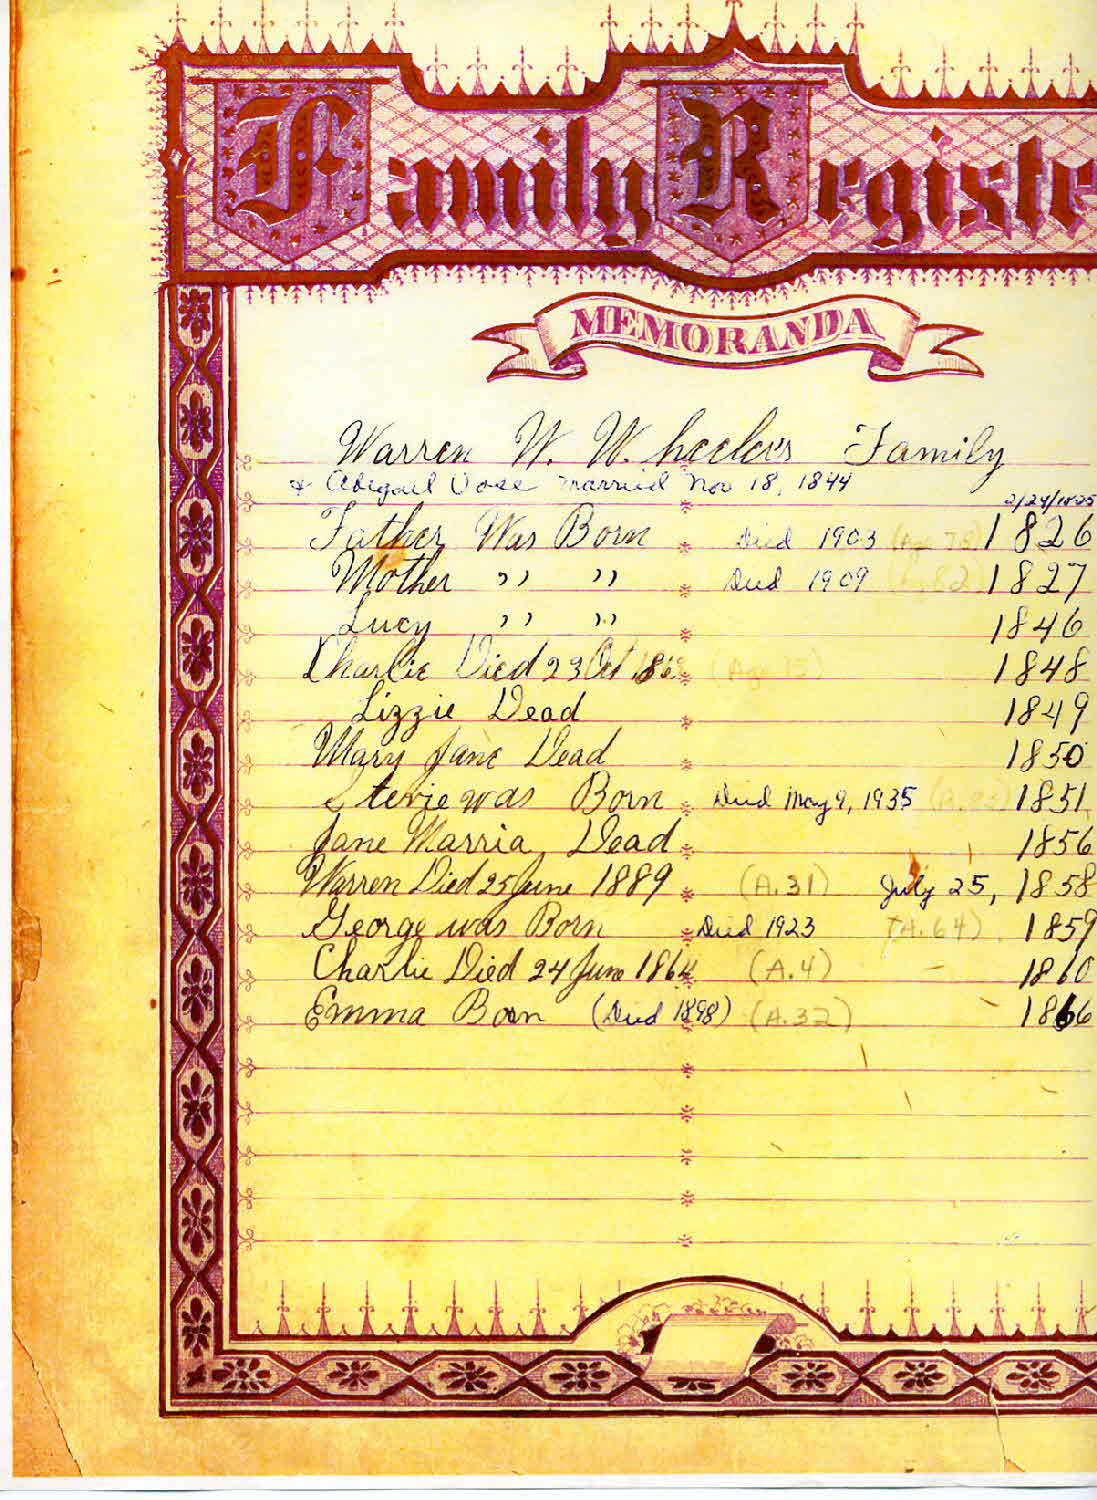 Family Registe
MEMORANDA
Warren W. Wheeler's Family
& Abigail Vose married Nov 18, 1844
2/24/1825
Father Was Born Died 1903 (Age 78) 1826
Mother " " Died 1909 82 1827
Lucy " " 1846
Charlie Died 23 Oct (Age 15) 1848
Lizzie Dead 1849
Mary Jane Dead 1850
Stevie was Born Died May 9, 1935 1851
Jane Marria Dead 1856
Warren Died 25 June 1889 (A.31) July 25, 1858
George was Born Died 1923 (A.64) 1859
Charlie Died 24 June 1864 (A.4) 1860
Emma Born (Died 1898) (A.32) 1866